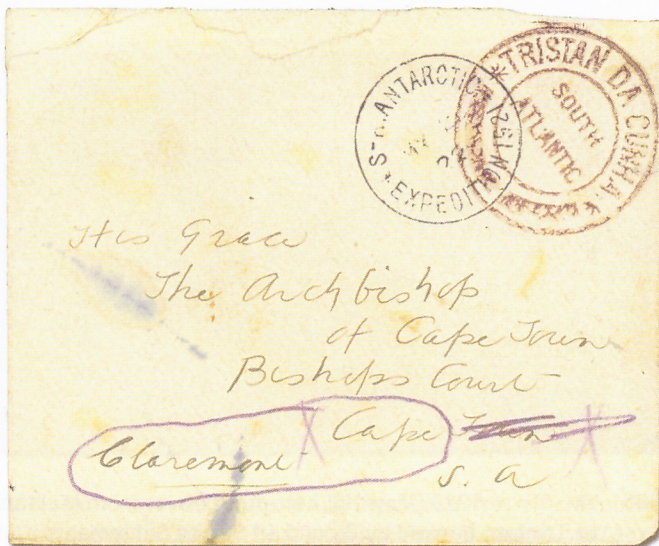 S-R. ANTARCTIC EXPEDITION 1921
*TRISTAN DA CUNHA*
SOUTH
ATLANTIC
His Grace
The Archbishop
of Cape Town
Bishops Court
Claremont X Cape Town X
S. A